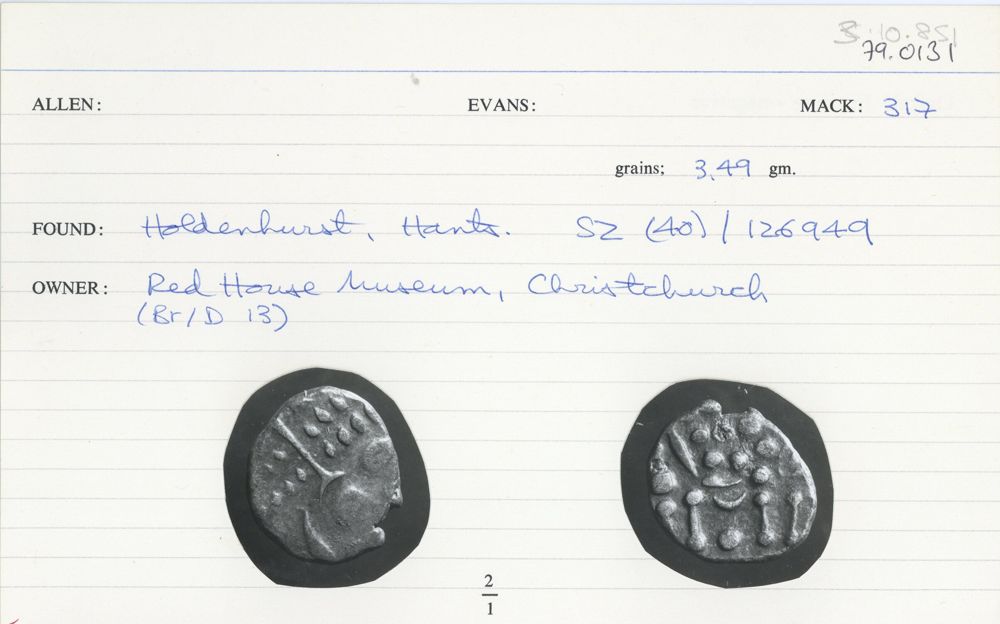 79.0131
ALLEN: EVANS: MACK: 317
grains; 3.49 gm.
FOUND: Holdenhurst, Hants. SZ (40) / 126949
OWNER: Red House Museum, Christchurch
(Br/D 13)
2
1